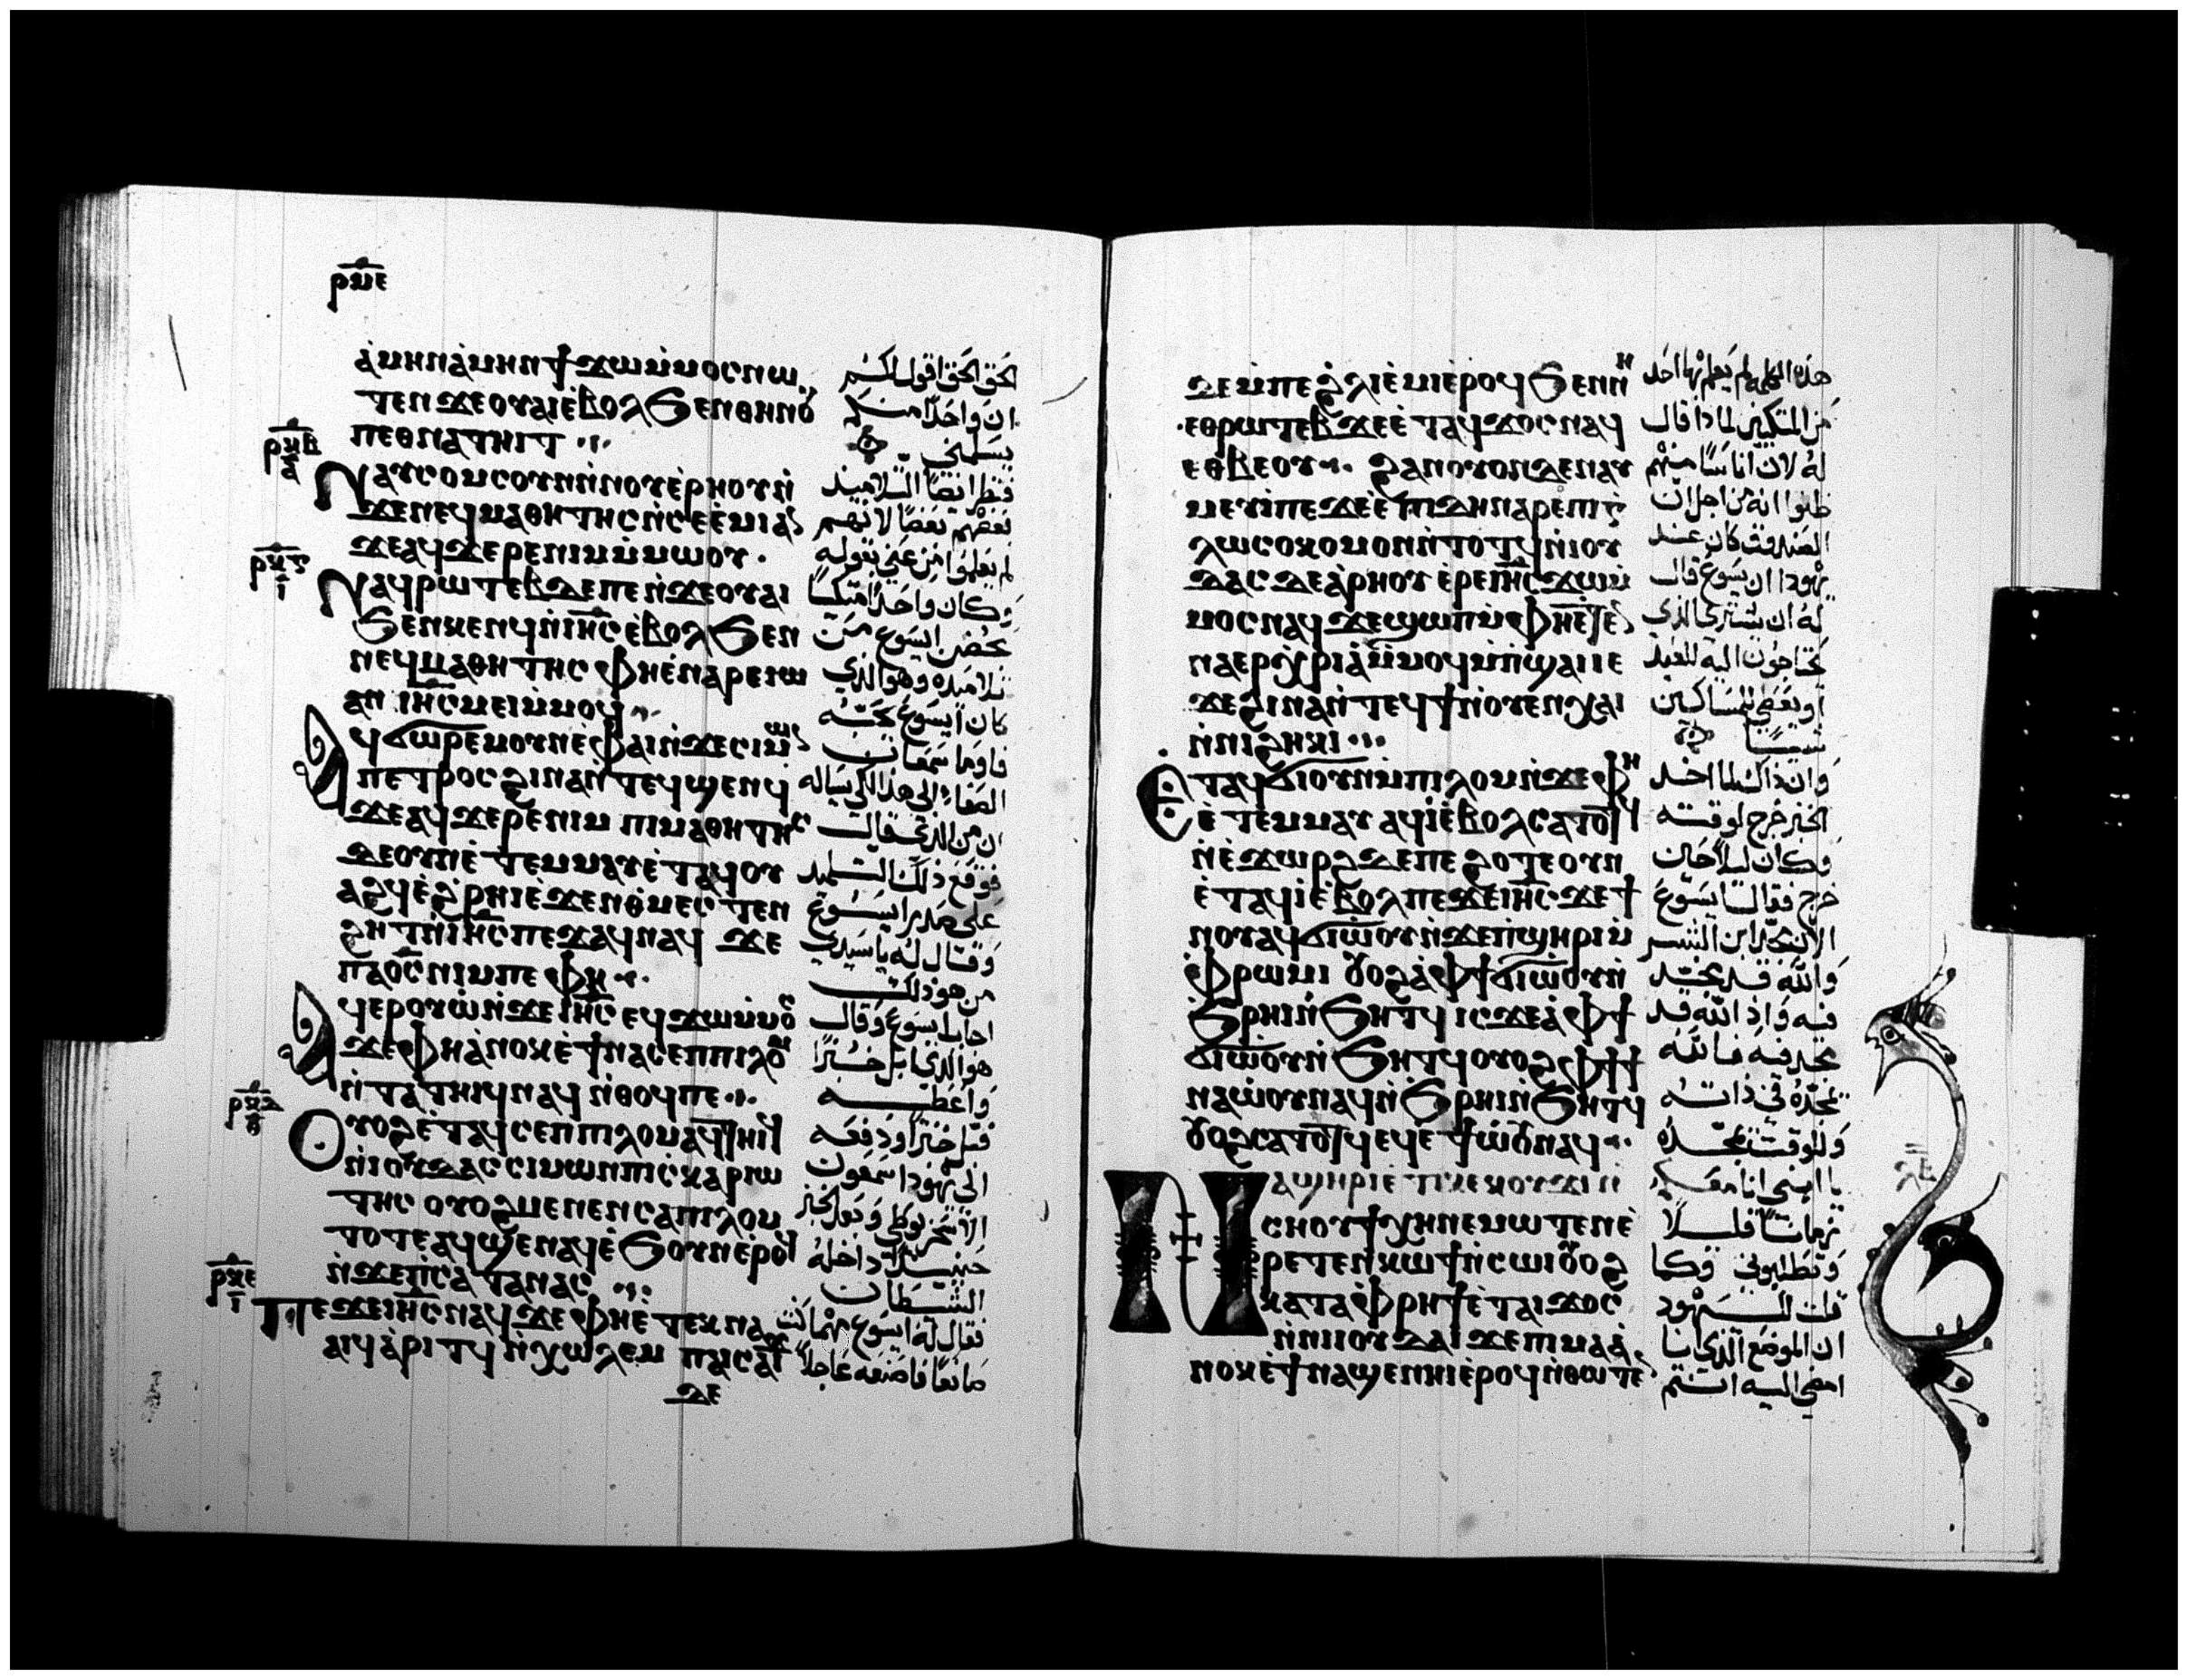 ⲣⲙⲉ
ⲁ̀ⲙⲏⲛⲁ̀ⲙⲏⲛϯϫⲱⲙ̀ⲙⲟⲥⲛⲱ
ⲧⲉⲛϫⲉⲟⲩⲁⲓⲉ̀ⲃⲟⲗϧⲉⲛⲑⲏⲛⲟ
ⲡⲉⲑⲛⲁⲧⲏⲓⲧ
ⲛⲁⲩⲥⲟⲙⲥⲟⲩⲛⲛ̀ⲛⲟⲩⲉ̀ⲣⲏⲟⲩⲛ̀
ϫⲉⲛⲉϥⲙⲁⲑⲏⲧⲏⲥⲛ̀ⲥⲉⲉ̀ⲙⲓⲁ
ϫⲉⲁϥϫⲉⲣⲉⲛⲓⲙⲙ̀ⲙⲱⲟⲩ
ⲛⲁϥⲣⲱⲧⲉⲃⲇⲉⲡⲉⲛ̀ϫⲉⲟⲩⲁⲓ
ϧⲉⲛⲕⲉⲛϥⲛ̀ⲓⲏ̅ⲥ̅ⲉ̀ⲃⲟⲗϧⲉⲛ
ⲛⲉϥⲙⲁⲑⲏⲧⲏⲥ ⲫⲏⲉ̀ⲛⲁⲣⲉⲓⲱ
ⲁⲛ ⲓⲏ̅ⲥ̅ⲙⲉⲓⲙ̀ⲙⲟϥ
ϥϭⲱⲣⲉⲙⲟⲩⲛⲉ̀ⲫⲁⲓⲛ̀ϫⲉⲥⲓⲙ̀ⲱ
ⲡⲉⲧⲣⲟⲥϩⲓⲛⲁⲛ̀ⲧⲉϥϣⲉⲛϥ
ϫⲉⲁϥϫⲉⲣⲉⲛⲓⲙ ⲡⲓⲙⲁⲑⲏⲧⲏⲥ
ⲇⲉⲟⲩⲛⲉ̀ⲧⲉⲙⲙⲁⲩⲉ̀ⲧⲁϥⲟⲩ
ⲁϩϥⲉ̀ϩ̀ⲣⲏⲓⲉ̀ϫⲉⲛⲑ̀ⲙⲉⲥⲧⲉⲛ
ϩⲏⲧⲛ̀ⲓⲏ̅ⲥ̅ⲡⲉϫⲁϥⲛⲁϥ ϫⲉ
ⲡⲁⲟ̅ⲥ̅ⲛⲓⲙⲡⲉ ⲫⲏ
ϥⲉⲣⲟⲩⲱ̀ⲛ̀ϫⲉⲓⲏ̅ⲥ̅ ⲉϥϫⲱⲙ̀ⲙⲟⲥ
ϫⲉⲫⲏⲁ̀ⲛⲟⲕⲉ̀ϯⲛⲁⲥⲉⲡⲡⲓⲗⲟⲙ
ⲛ̀ⲧⲁⲧⲏⲓϥⲛⲁϥ ⲛ̀ⲑⲟϥⲡⲉ
ⲟⲩⲟϩⲉ̀ⲧⲁϥⲥⲉⲡⲡⲓⲗⲟⲙⲁϥⲧⲏⲓϥ
ⲛ̀ⲓⲟⲩⲇⲁⲥ ⲥⲓⲙⲱⲛⲡⲓⲥⲕⲁⲣⲓⲱ
ⲧⲏⲥ ⲟⲩⲟϩⲙⲉⲛⲉⲛⲥⲁⲡⲓⲗⲟⲙ
ⲧⲟⲧⲉⲁϥϣⲉⲛⲁϥⲉ̀ϧⲟⲩⲛⲉ̀ⲣⲟϥ
ⲛ̀ϫⲉⲡⲥⲁⲧⲁⲛⲁⲥ
ⲡⲉϫⲉⲓⲏ̅ⲥ̅ⲛⲁϥϫⲉⲫⲏⲉ̀ⲧⲉⲕⲛⲁ
ⲁⲓϥⲁ̀ⲣⲓⲧϥⲛ̀ⲭⲱⲗⲉⲙ ⲡⲁⲓⲥⲁϫⲓ
ϫⲉ
الحق الحق اقول لكم
ان واحدا منكم
يسلمني
فنظر ايضا التلاميذ
بعضهم بعضا لانهم
لم يعلموا من عني بقوله
وكان واحدا متكيا
بحضن ايسوع من
تلاميذه وهو الذي
كان ايسوع يحبه
فاوما سمعان
الصفا الي هذا لكي يساله
ان من الذي قال
فوقع ذلك التلميذ
علي صدر ايسوع
وقال له يا سيدي
من هو ذلك
اجاب ايسوع وقال
هو الذي ابل خبزا
واعطيه
فبل خبزا ودفعه
الي يهودا سمعون
الاسخريوطي وبعد الخبز
حينيذ داخله
الشيطان
فقال له ايسوع مهما كنت
صانعا فاصنعه عاجلا
ⲇⲉⲙ̀ⲡⲉϩ̀ⲗⲓⲉ̀ⲙⲓⲉ̀ⲣⲟϥϧⲉⲛⲛⲏ
ⲉⲑⲣⲱⲧⲉⲃϫⲉⲉ̀ⲧⲁϥϫⲟⲥⲛⲁϥ
ⲉⲑⲃⲉⲟⲩ ϩⲁⲛⲟⲩⲟⲛⲇⲉⲛⲁⲩ
ⲙⲉⲩⲓ̀ⲡⲉϫⲉⲉ̀ⲡⲓⲇⲏⲛⲁⲣⲉⲡⲓⲅ̀
ⲗⲱⲥⲟⲕⲟⲙⲟⲛⲛ̀ⲧⲟⲧϥⲛ̀ⲓⲟⲩ
ⲇⲁⲥ ϫⲉⲁ̀ⲣⲏⲟⲩ ⲉⲣⲉⲓⲏ̅ⲥ̅ϫⲱⲙ̀
ⲙⲟⲥⲛⲁϥ ϫⲉϣⲱⲡⲙ̀ⲫⲏⲉ̀ⲧⲉ
ⲛⲁⲉⲣⲭ̀ⲣⲓⲁ̀ⲙ̀ⲙⲟϥⲙ̀ⲡ̀ϣⲁⲓⲓⲉ
ϫⲉϩⲓⲛⲁⲛ̀ⲧⲉϥϯⲛ̀ⲟⲩⲉⲛⲭⲁⲓ
ⲛ̀ⲛⲓϩⲏⲕⲓ
ⲉⲧⲁϥϭⲓⲟⲩⲛⲙ̀ⲡⲓⲗⲟⲙⲛ̀ϫⲉⲫⲏ
ⲉ̀ⲧⲉⲙⲙⲁⲩ ⲁϥⲓ̀ⲉ̀ⲃⲟⲗⲥⲁⲧⲟⲧϥ
ⲛⲉ̀ϫⲱⲣϩⲇⲉⲡⲉ ϩⲟⲧⲉⲟⲩⲛ
ⲉ̀ⲧⲁϥⲓ̀ⲉ̀ⲃⲟⲗⲡⲉϫⲉⲓⲏ̅ⲥ̅ϫⲉϯ
ⲛⲟⲩⲁϥϭⲓⲱ̀ⲟⲩⲛ̀ϫⲉⲡ̀ϣⲏⲣⲓⲙ̀
ⲫ̀ⲣⲱⲙⲓ ⲟⲩⲟϩⲁ̀ⲫϯϭⲓⲱ̀ⲟⲩⲛ̀
ϧ̀ⲣⲏⲓⲛ̀ϧⲏⲧϥ ⲓⲥϫⲉⲁ̀ⲫϯ
ϭⲓⲱ̀ⲟⲩⲛ̀ϧⲏⲧϥⲟⲩⲟϩ ⲫϯϯ
ⲛⲁⲱ̀ⲟⲩⲛⲁϥⲛ̀ϧ̀ⲣⲏⲓⲛ̀ϧⲏⲧϥ
ⲟⲩⲟϩⲥⲁⲧⲟⲧϥⲉϥⲉ̀ϯⲱ̀ⲟⲩⲛⲁϥ
ⲛⲁϣⲏⲣⲓⲉ̀ⲧⲓⲕⲉⲕⲟⲩϫⲓⲛ̀
ⲥⲏⲟⲩϯⲭⲏⲛⲉⲙⲱⲧⲉⲛⲉ̀
ⲣⲉⲧⲉⲛⲕⲱϯⲛ̀ⲥⲱⲓⲟⲩⲟϩ
ⲕⲁⲧⲁⲫ̀ⲣⲏϯⲉ̀ⲧⲁⲓϫⲟⲥ
ⲛ̀ⲛⲓⲓⲟⲩⲇⲁⲓ ϫⲉⲡⲓⲙⲁⲁ̀
ⲛⲟⲕⲉ̀ϯⲛⲁϣⲉⲛⲏⲓⲉ̀ⲣⲟϥⲛ̀ⲑⲱⲧⲉ
هذه الكلمة لم يعلمها احد
من المتكيين لماذا قال
له لان اناسا منهم
ظنوا انه من اجل ان
الصندوق كان عند
يهودا ان يسوع قال
له ان تشتري الذي
تحتاجون اليه للعيد
او يعطي للمساكين
شيئا
وان ذاك لما اخذ
الخبز خرج لوقته
وكان ليلا حين
خرج فقال ايسوع
الان تمجد ابن البشر
والله قد تمجد
فيه واذا الله قد
تمجد فيه فالله
يمجده في ذاته
وللوقت يمجده
يا ابني انا معكم
زمانا قليلا
وتطلبوني وكما
قلت لليهود
ان الموضع الذي انا
امضي اليه انتم